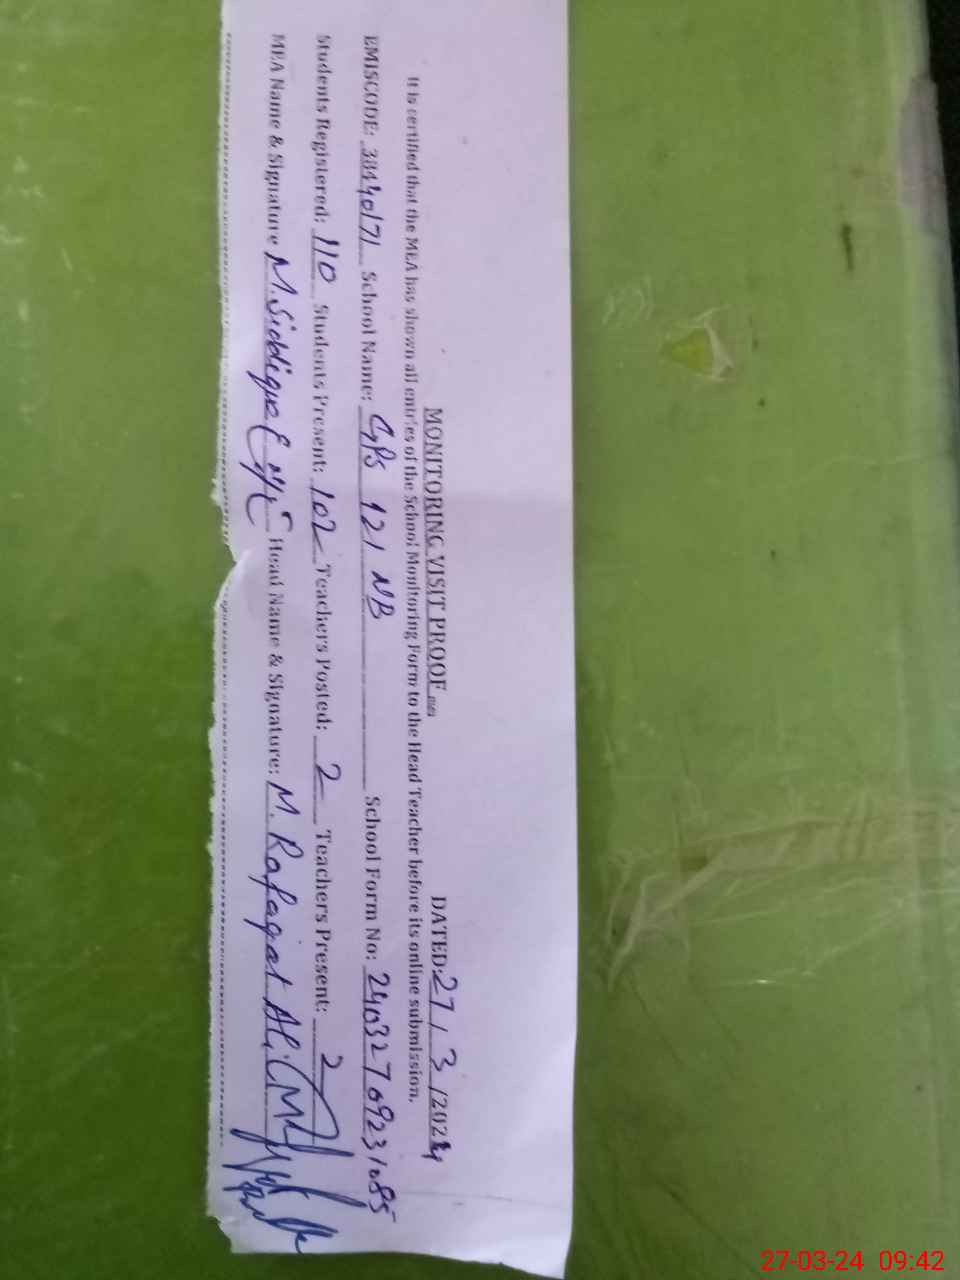 MONITORING VISIT PROOF DATED: 27/3/2024
It is certified that the MEA has shown all entries of the School Monitoring Form to the Head Teacher before its online submission.
EMISCODE: 38440171 School Name: GPS 121 NB School Form No: 240327 0923 1085
Students Registered: 110 Students Present: 102 Teachers Posted: 2 Teachers Present: 2
MEA Name & Signature M. Siddique Head Name & Signature: M. Rafaqat Ali
27-03-24 09:42